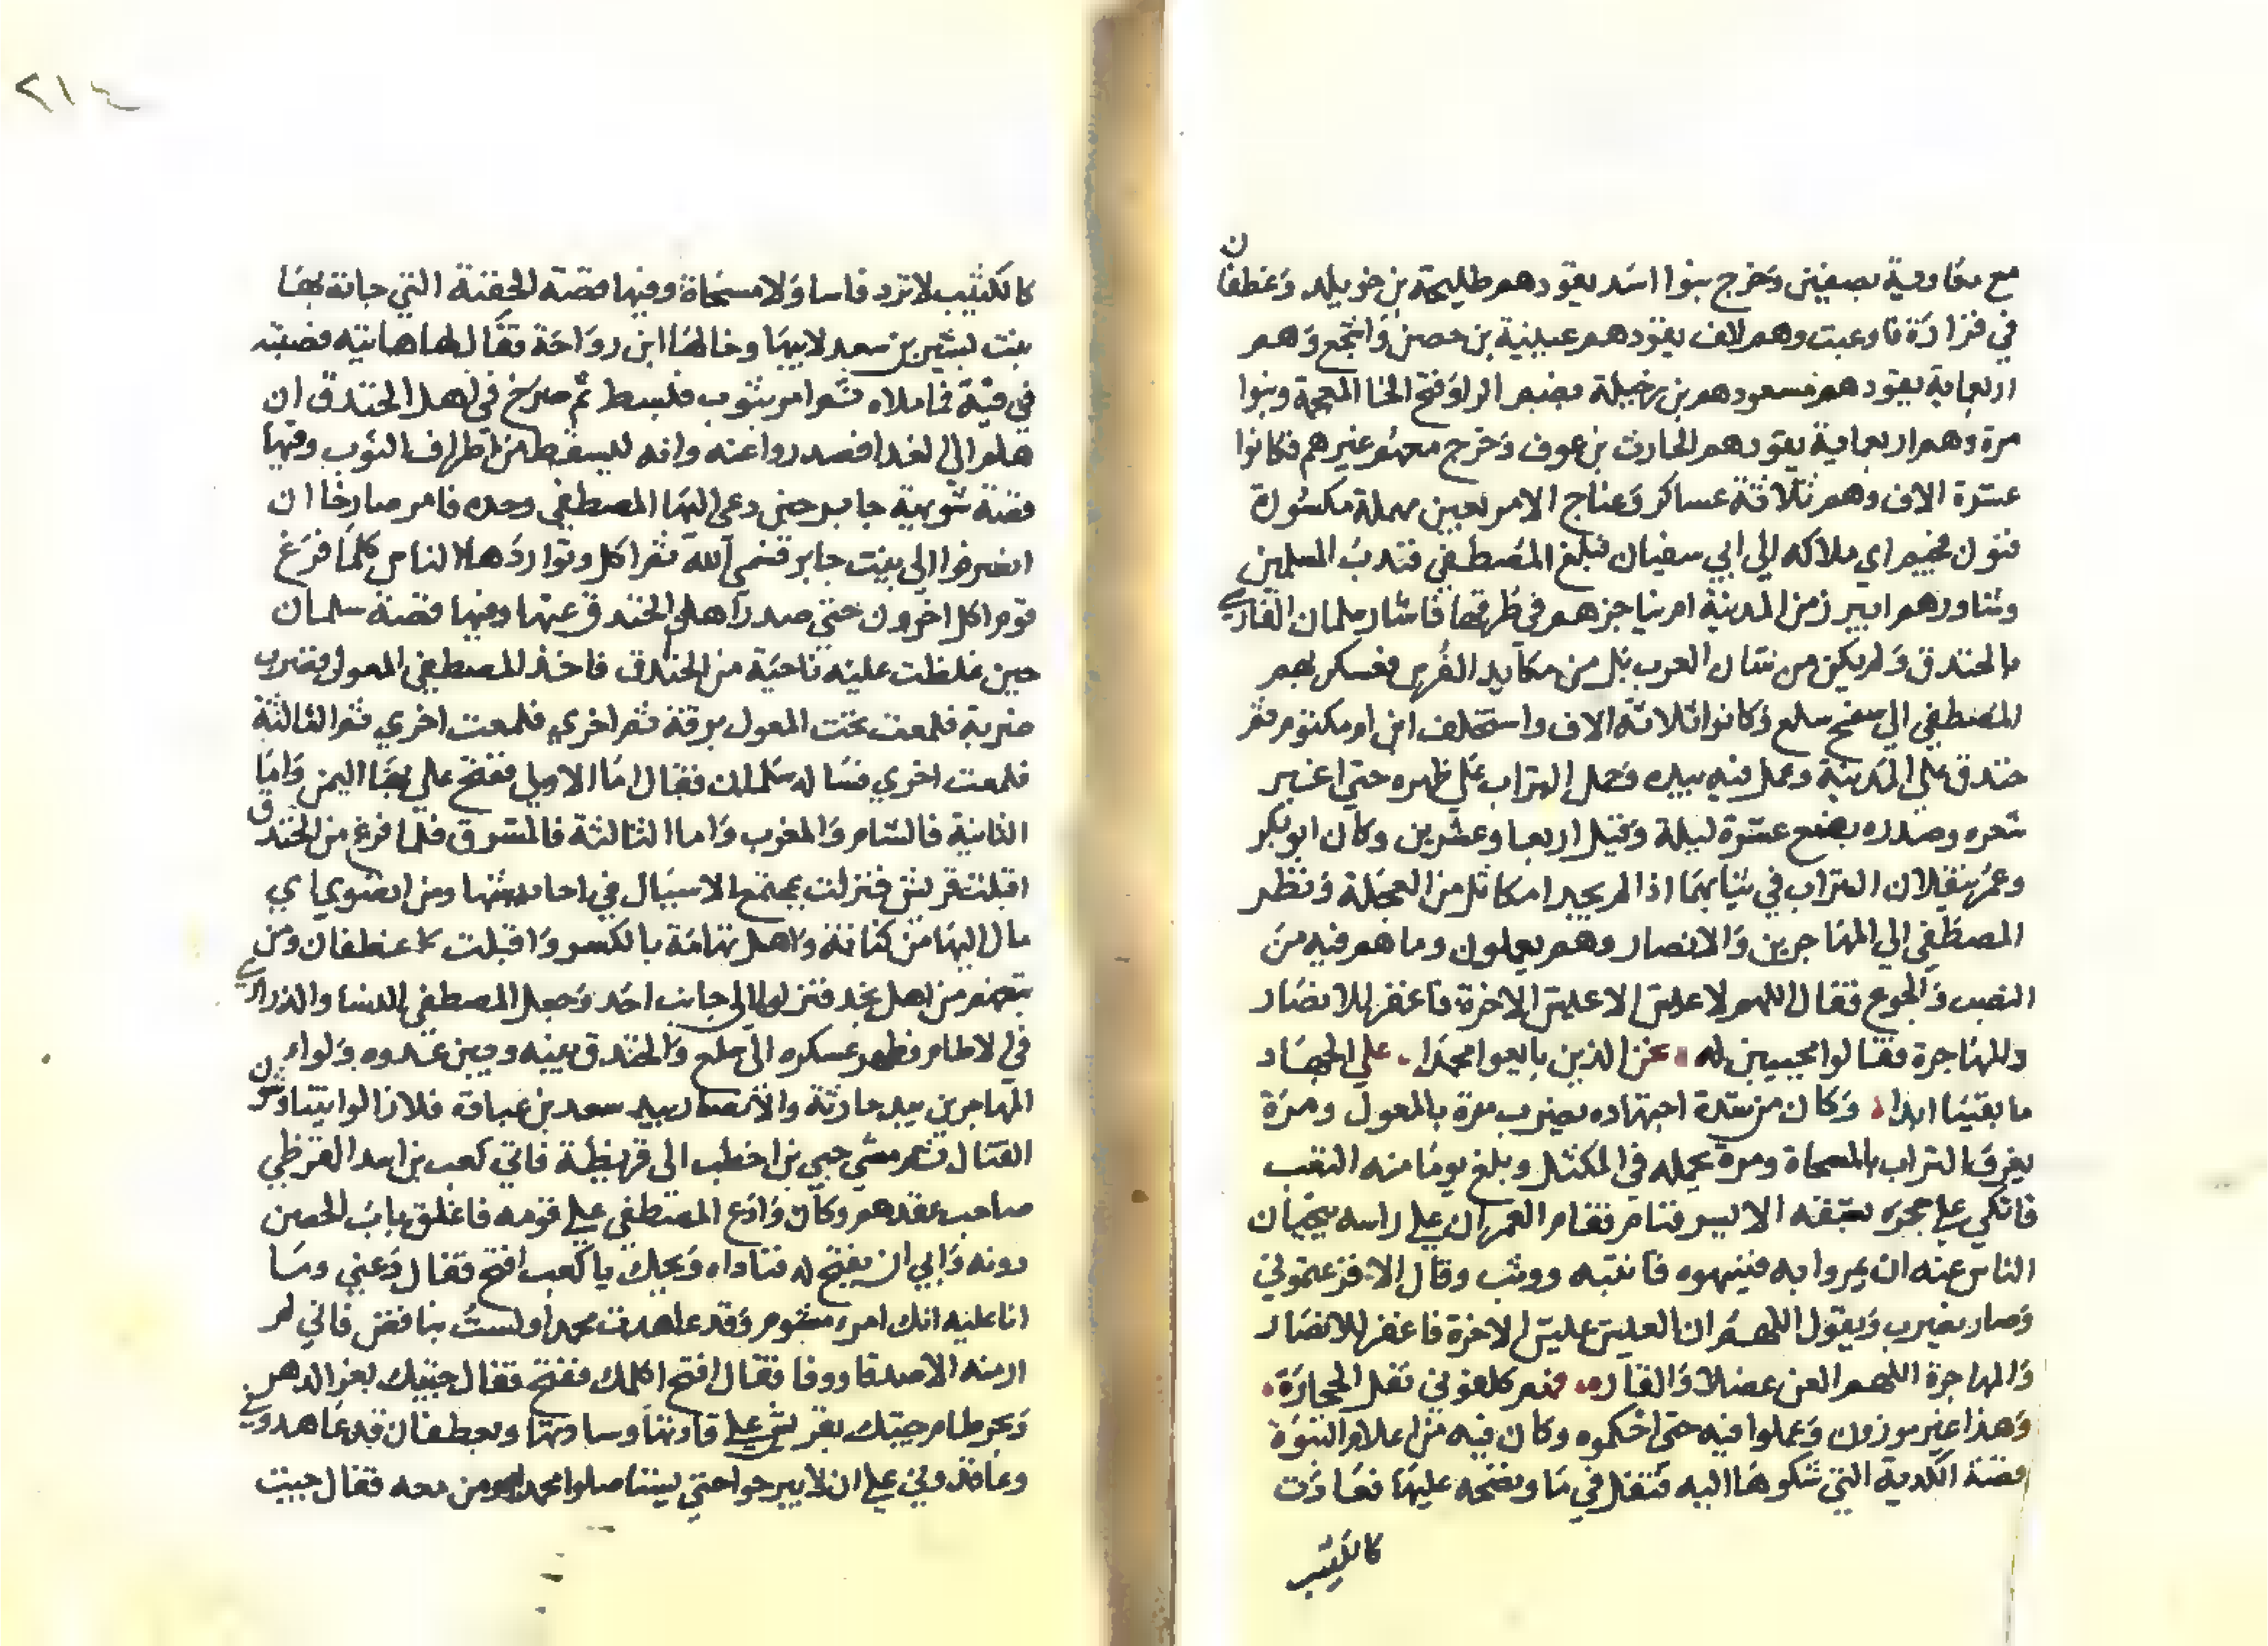 مع معاوية بصفين وخرج بنوا اسد يقودهم طليحة بن خويلد وغطفان
في فزارة فاوعبت وهم لاف يقودهم عيينة بن حصن واشجع وهم
اربعماية يقودهم مسعود هو بن رخيلة بضم الراوفتح الخا المعجمة وبنوا
مرة وهم اربعماية يقودهم الحارث بن عوف وخرج معهم غيرهم فكانوا
عشرة الاف وهم ثلاثة عساكر وعناج الامر بعين مهملة مكسورة
فنون فجيم اي ملاكه الي ابي سفيان فبلغ المصطفي فندب المسلمين
وشاورهم ايبرز من المدينة ام يناجزهم في طرقها فاشار سلمان الفارسي
بالخندق ولم يكن من شان العرب بل من مكايد الفرس فعسكر بهم
المصطفي الي سفح سلع وكانوا ثلاثة الاف واستخلف ابن ام مكتوم ثم
خندق علي المدينة وعمل فيه بيده وحمل التراب علي ظهره حتي اغبر
شعره وصدره بضع عشرة ليلة وقيل اربعا وعشرين وكان ابوبكر
وعمر ينقلان التراب في ثيابهما اذا لم يجدا مكاتل من العجلة ونظر
المصطفي الي المهاجرين والانصار وهم يعملون وما هم فيه من
النصب والجوع فقال اللهم لا عيش الا عيش الاخرة فاغفر للانصار
وللمهاجرة فقالوا مجيبين له نحن الذين بايعوا محمدا علي الجهاد
ما بقينا ابدا وكان من شدة اجتهاده يضرب مرة بالمعول ومرة
يغرف التراب بالمسحاة ومرة يحمله في المكتل وبلغ يوما منه التعب
فاتكي علي حجره بشقه الايسر فنام فقام العمران علي راسه ينحيان
الناس عنه ان يمروا به فينبهوه فانتبه ووثب وقال الا فزعتموني
وصار يضرب ويقول اللهم ان العيش عيش الاخرة فاغفر للانصار
والمهاجرة اللهم العن عضلا والقاره هم كلفوني نقل الحجارة
وهذا غير موزون وعملوا فيه حتي احكموه وكان فيه من اعلام النبوة
قصة الكدية التي شكوها اليه فتفل في ما ونضحه عليها فعادت
كالكثيب
٢١٤
كالكثيب لا ترد فاسا ولا مسحاة وفيها قصة الحفنة التي جاتة بها
بنت لبشير بن سعد لابيها وخالها ابن رواحة فقال لها هاتيه فصبته
في فما ملاه ثم امر بثوب فبسط ثم صرخ في اهل الخندق ان
هلم الي الغدا فصدروا عنه وانه ليسقط من اطراف الثوب وفيها
قصة شويهة جابر حين دعي اليها المصطفي وحده فامر صارخا ان
انصرفوا الي بيت جابر فسمي الله ثم اكل وتواردها الناس كلما فرغ
قوم اكل اخرون حتي صدر اهل الخندق عنها وفيها قصة سلمان
حين غلظت عليه ناحية من الخندق فاخذ المصطفي المعول فضرب
ضربة فلمعت تحت المعول برقة ثم اخري فلمعت اخري ثم الثالثة
فلمعت اخري فساله سلمان فقال اما الاولي ففتح علي بها اليمن واما
الثانية فالشام والمغرب واما الثالثة فالمشرق فلما فرغ من الخندق
اقبلت قريش فنزلت بمجتمع الاسيال في احابيشها ومن انضوي اي
مال اليها من كنانة واهل تهامة بالكسر واقبلت غطفان ومن
تبعهم من اهل نجد فنزلوا الي جانب احد وجعل المصطفي النسا والذراري
في الاطام وظهر عسكره الي سلع والخندق بينه وبين عدوه ولواء
المهاجرين بيد حارثة والانصار بيد سعد بن عبادة فلازالوا يتناوشون
القتال ثم مشي حيي بن اخطب الي قريظة فاتي كعب بن اسد القرظي
صاحب عقدهم وكان وادع المصطفي علي قومه فاغلق باب الحصن
دونه وابي ان يفتح له فناداه ويحك يا كعب افتح فقال دعني وما
انا عليه انك امرء مشوم وقد عاهدت محمدا ولست بناقض فاني لم
ار منه الا صدقا ووفا فقال افتح اكلمك ففتح فقال جيتك بعز الدهر
وبحر طام جيتك بقريش علي قادتها وسادتها وبغطفان قد عاهدوني
وعاقدوني علي ان لا يبرحوا حتي يستاصلوا محمدا ومن معه فقال جيت